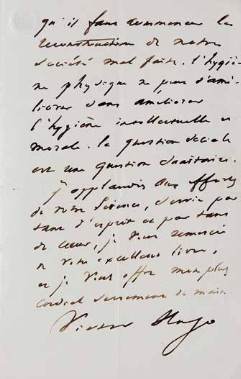 qu'il faut commencer la
reconstruction de notre
société mal faite. l'hygiène
physique ne peut s'améliorer
sans améliorer
l'hygiène intellectuelle et
morale. la question sociale
est une question sanitaire.
j'applaudis aux efforts
de votre science, servie par
tant d'esprit et par tant
de cœur, je vous remercie
de votre excellent livre,
et je vous offre mon plus
cordial serrement de main
Victor Hugo